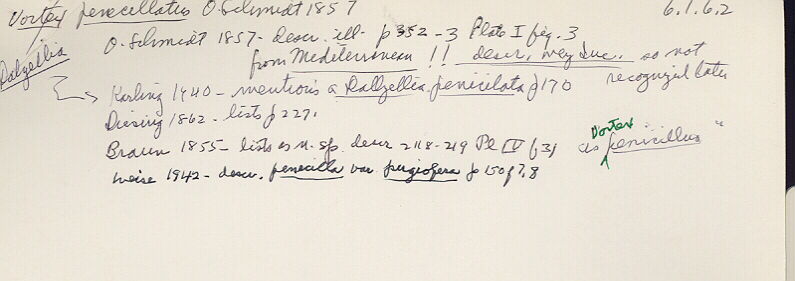 Vortex penecillatus O. Schmidt 1857 6.1.6.2
Dalyellia
O. Schmidt 1857 - descr. ill. p 352-3 Plate I fig. 3
from Mediterranean !! descr. very suc. so not
recognized later
Karling 1940 - mentions a Dallyellia penicilata p 170
Diesing 1862 - lists p 227.
Braun 1855 - lists as n. sp. descr 218-219 Pl IV f 3, as Vortex "penicillus"
Weise 1942 - descr. penecilla var. p 150 f 7,8